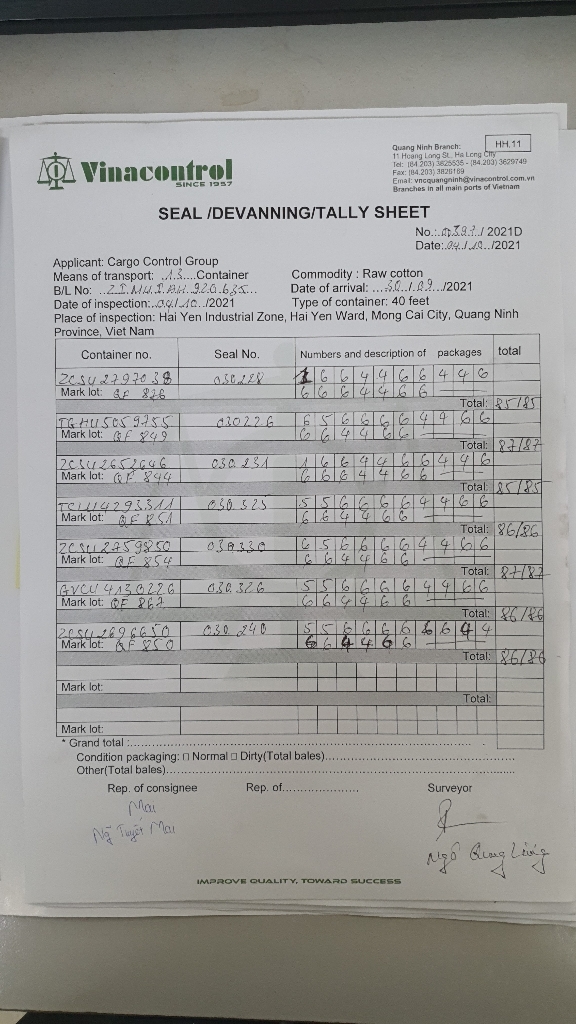 Vinacontrol
SINCE 1957
HH.11
Quang Ninh Branch:
11 Hoang Long St., Ha Long City
Tel: (84.203) 3625535 - (84.203) 3629749
Fax: (84.203) 3826169
Email: vncquangninh@vinacontrol.com.vn
Branches in all main ports of Vietnam
SEAL /DEVANNING/TALLY SHEET
/ 2021D
Date: 04/10 /2021
Applicant: Cargo Control Group
Means of transport: 13 Container
Commodity : Raw cotton
B/L No:
Date of arrival: 30/09 /2021
Date of inspection: 04/10 /2021
Type of container: 40 feet
Place of inspection: Hai Yen Industrial Zone, Hai Yen Ward, Mong Cai City, Quang Ninh
Province, Viet Nam
Container no. Seal No. Numbers and description of packages total
030228 1 6 6 4 4 6 6 4 4 6
Mark lot: QF 876 6 6 6 4 4 6 6
Total: 85/85
TGHU5059755 030226 6 5 6 6 6 6 4 4 6 6
Mark lot: QF 849 6 6 4 4 6 6
Total: 87/87
ZCSU2652646 030.231 1 6 6 4 4 6 6 4 4 6
Mark lot: QF 844 6 6 6 4 4 6 6
Total: 85/85
030.325 5 5 6 6 6 6 4 4 6 6
Mark lot: QF 851 6 6 4 4 6 6
Total: 86/86
ZCSU2759850 030330 6 5 6 6 6 6 4 4 6 6
Mark lot: QF 854 6 6 4 4 6 6
Total: 87/87
GVCU4130226 030.326 5 5 6 6 6 6 4 4 6 6
Mark lot: QF 867 6 6 4 4 6 6
Total: 86/86
ZCSU2696650 030.240 5 5 6 6 6 6 6 4 4
Mark lot: QF 850 6 6 4 4 6 6
Total: 86/86
Mark lot:
Total:
Mark lot:
* Grand total :
Condition packaging: □ Normal □ Dirty(Total bales)
Other(Total bales)
Rep. of consignee Rep. of Surveyor
Mai
Ngô Quang
IMPROVE QUALITY, TOWARD SUCCESS